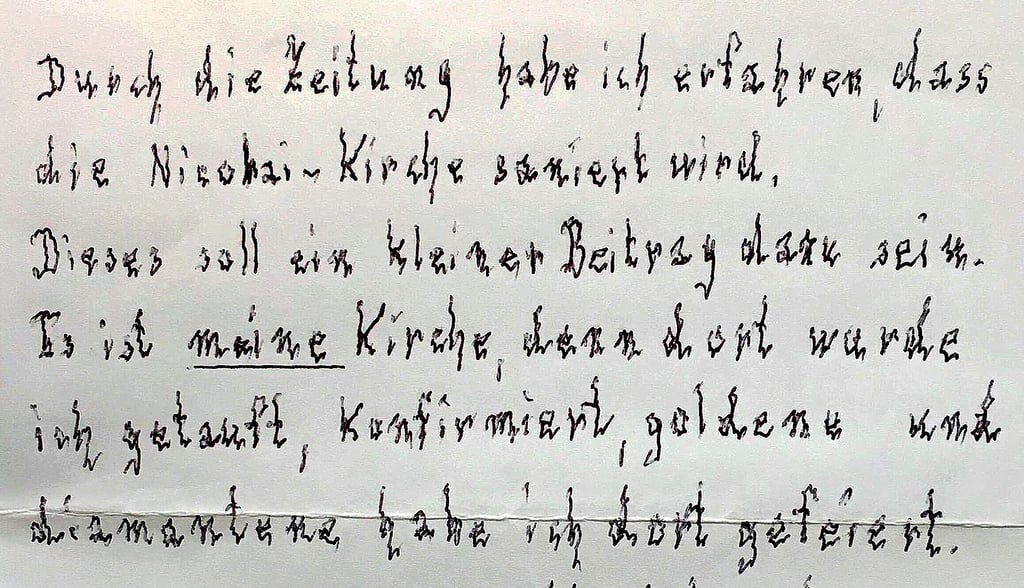 Durch die Zeitung habe ich erfahren, dass
die Nicolai-Kirche saniert wird.
Dieses soll ein kleiner Beitrag dazu sein.
Es ist meine Kirche, denn dort wurde
ich getauft, Konfirmiert, goldene und
diamantene habe ich dort gefeiert.